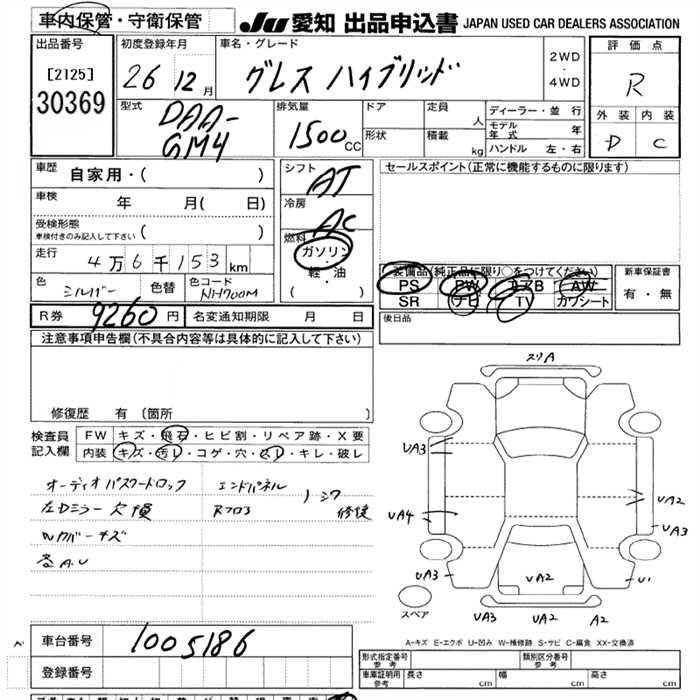 車内保管・守衛保管
JU 愛知 出品申込書 JAPAN USED CAR DEALERS ASSOCIATION
出品番号
[2125]
30369
初度登録年月
26 12 月
車名・グレード
グレス ハイブリッド
2WD
・
4WD
評価点
R
外装 内装
D C
型式
DAA-
GM4
排気量
1500 CC
ドア
形状
定員 人
積載 kg
ディーラー・並行
モデル年式 年
ハンドル 左・右
車歴
自家用・( )
車検
年 月( 日)
受検形態
車検付きのみ記入して下さい ( )
走行
4万6千153 km
色
シルバー
色替
色コード
NH700M
シフト
AT
冷房
AC
燃料
ガソリン
・
軽・油
( )
R券 9260 円
名変通知期限 月 日
セールスポイント(正常に機能するものに限ります)
装備品(純正品に限り○をつけてください)
PS PW エアB AW
SR ナビ TV カワシート
新車保証書
有・無
後日品
注意事項申告欄(不具合内容等は具体的に記入して下さい)
修復歴 有 (箇所 )
検査員
記入欄
FW キズ・飛石・ヒビ割・リペア跡・X要
内装 キズ・汚レ・コゲ・穴・スレ・キレ・破レ
オーディオパスワードロック
左Dミラー欠損
Wカバーキズ
各A.U
エンドパネル
Rフロア
シワ
修復
スリA
UA3
UA4
UA3
UA2
UA3
U1
UA2
UA3 UA2 A2
スペア
A-キズ E-エクボ U-凹み W-補修跡 S-サビ C-腐食 XX-交換済
車台番号
1005186
登録番号
形式指定番号
参考
類別区分番号
参考
車庫証明用
参考
長さ cm
幅 cm
高さ cm